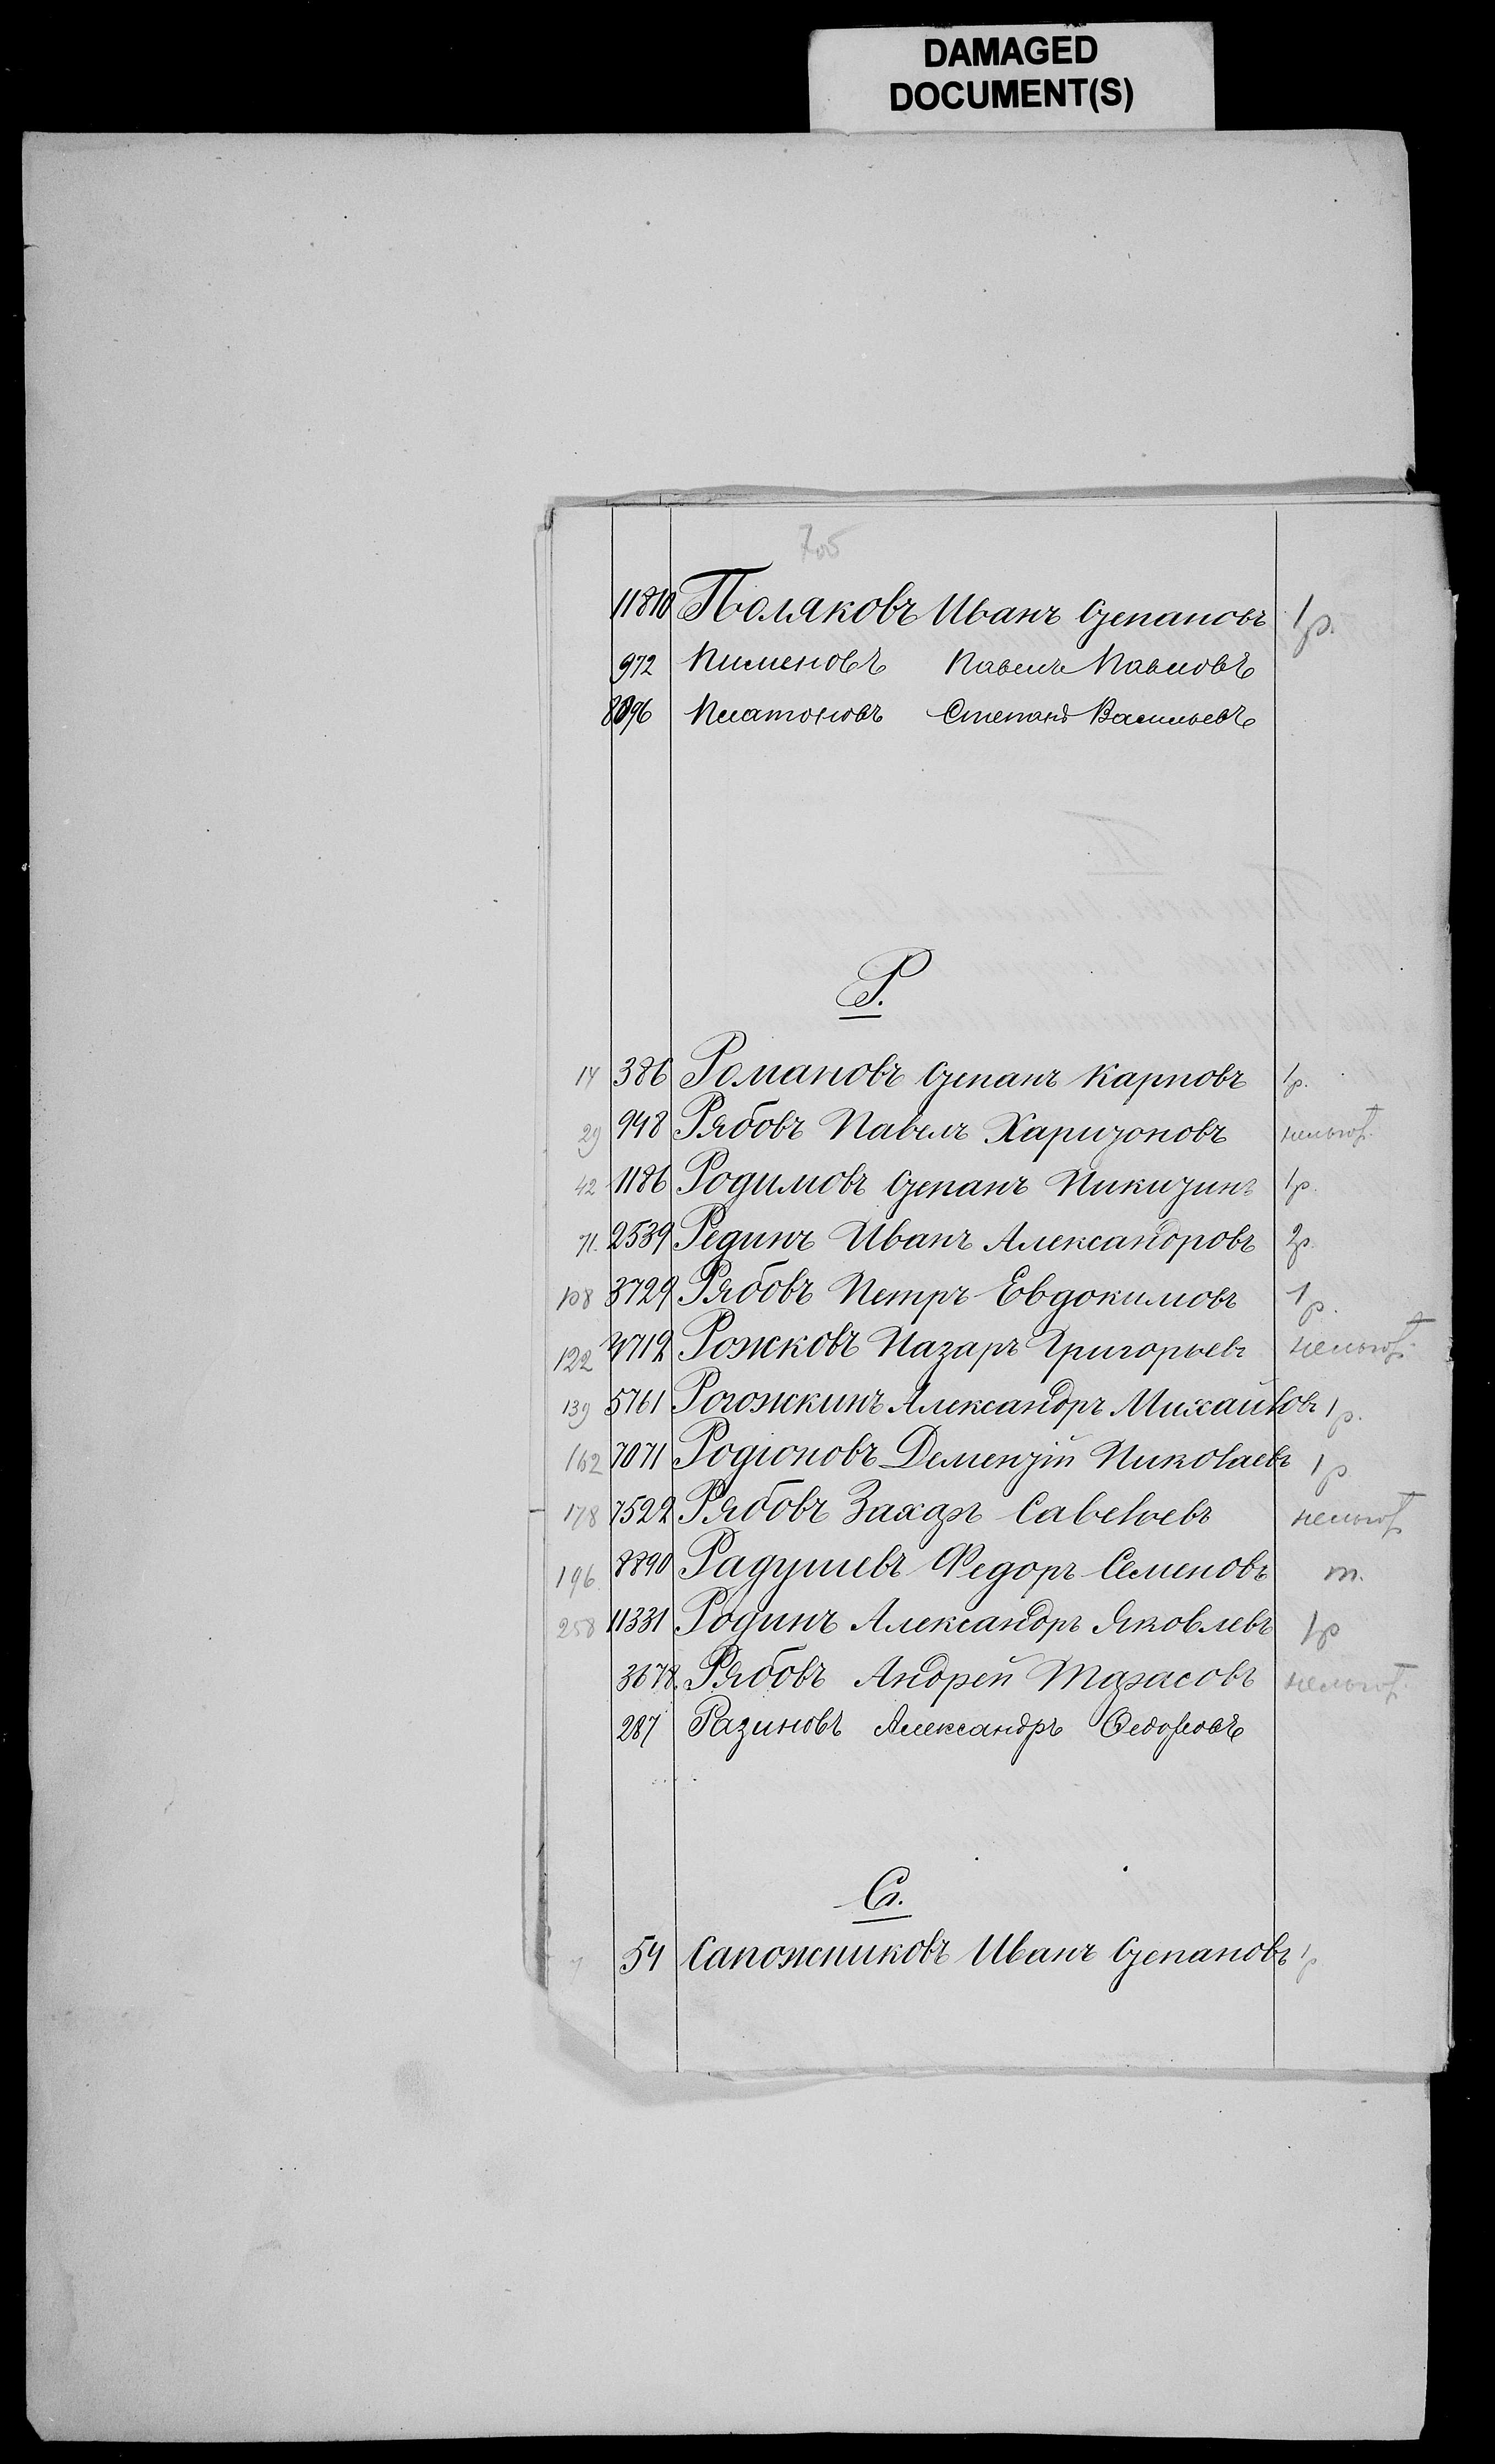 DAMAGED
DOCUMENT(S)
705
11810 Поляковъ Иванъ Степановъ 1р.
972 Пименовъ Павелъ Павловъ
8096 Платоновъ Степанъ Васильевъ
Р.
14 386 Романовъ Степанъ Карповъ 1р.
29 948 Рябовъ Павелъ Харитоновъ нельгот.
42 1186 Родимовъ Степанъ Никитинъ 1р.
71. 2539 Рединъ Иванъ Александровъ 2р.
108 3729 Рябовъ Петръ Евдокимовъ 1р.
122 4712 Рожковъ Назаръ Григорьевъ нельгот.
139 5761 Рогожкинъ Александръ Михайловъ 1р.
162 7071 Родіоновъ Дементій Николаевъ 1р
178 7522 Рябовъ Захаръ Савельевъ нельгот.
196. 8890 Радушевъ Федоръ Семеновъ т.
258 11331 Родинъ Александръ Яковлевъ 1р
3678. Рябовъ Андрей Тарасовъ нельгот.
287 Разиновъ Александръ Ѳедоровъ
С.
54 Сапожниковъ Иванъ Степановъ 1р